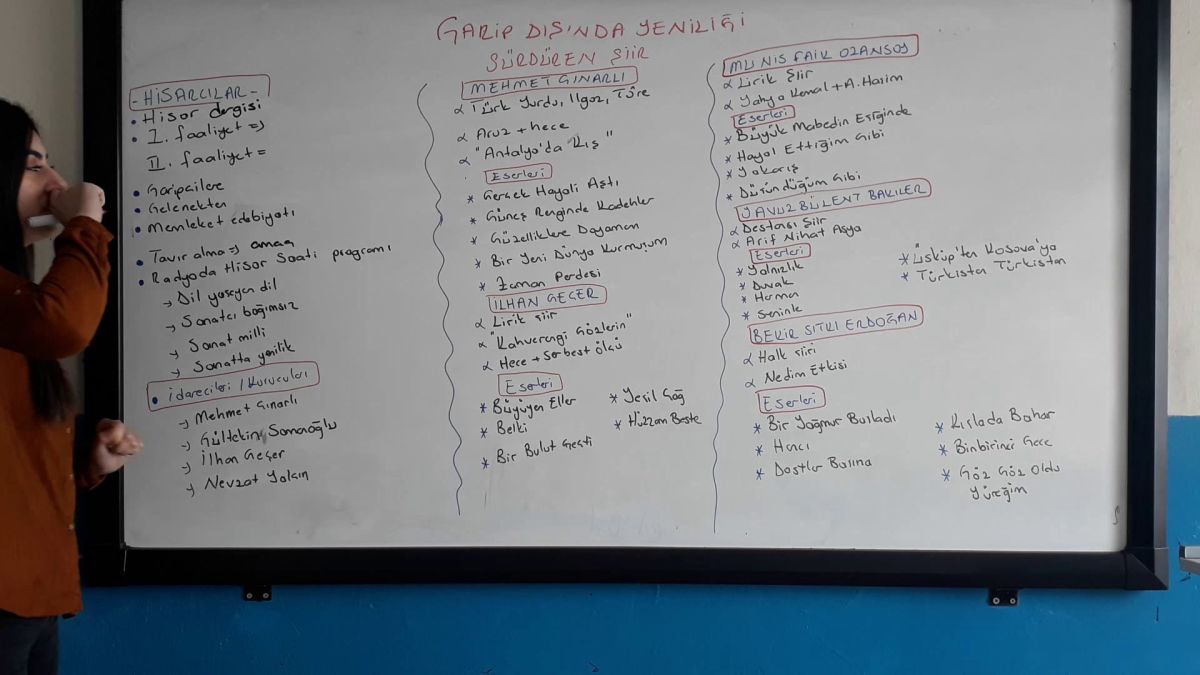 GARİP DIŞINDA YENİLİĞİ
SÜRDÜREN ŞİİR
- HİSARCILAR -
• Hisar dergisi
• I. faaliyet =>
II. faaliyet =
• Garipçilere
• Gelenekten
• Memleket edebiyatı
• Tavır alma => amaç
• Radyoda Hisar Saati programı
→ Dil yaşayan dil
→ Sanatçı bağımsız
→ Sanat milli
→ Sanatta yenilik
• İdarecileri / Kurucuları
→ Mehmet Çınarlı
→ Gültekin Samanoğlu
→ İlhan Geçer
→ Nevzat Yalçın
MEHMET ÇINARLI
α Türk Yurdu, Ilgaz, Türe
α Aruz + hece
α "Antalya'da Kış"
Eserleri
* Gerçek Hayali Aştı
* Güneş Renginde Kadehler
* Güzelliklere Dayaman
* Bir Yeni Dünya Kurmuşum
* Zaman Perdesi
İLHAN GEÇER
α Lirik şiir
α "Kahverengi Gözlerin"
α Hece + Serbest ölçü
Eserleri
* Büyüyen Eller
* Belki
* Bir Bulut Geçti
* Yeşil Çağ
* Hüzzam Beste
MUNİS FAİK OZANSOY
α Lirik Şiir
α Yahya Kemal + A. Haşim
Eserleri
* Büyük Mabedin Eşiğinde
* Hayal Ettiğim Gibi
* Yakarış
* Düşündüğüm Gibi
YAVUZ BÜLENT BAKİLER
α Destansı Şiir
α Arif Nihat Asya
Eserleri
* Yalnızlık
* Duvak
* Harman
* Seninle
* Üsküp'ten Kosova'ya
* Türkistan Türkistan
BEKİR SITKI ERDOĞAN
α Halk şiiri
α Nedim Etkisi
Eserleri
* Bir Yağmur Başladı
* Hancı
* Dostlar Başına
* Kışlada Bahar
* Binbirinci Gece
* Göz Göz Oldu
Yüreğim